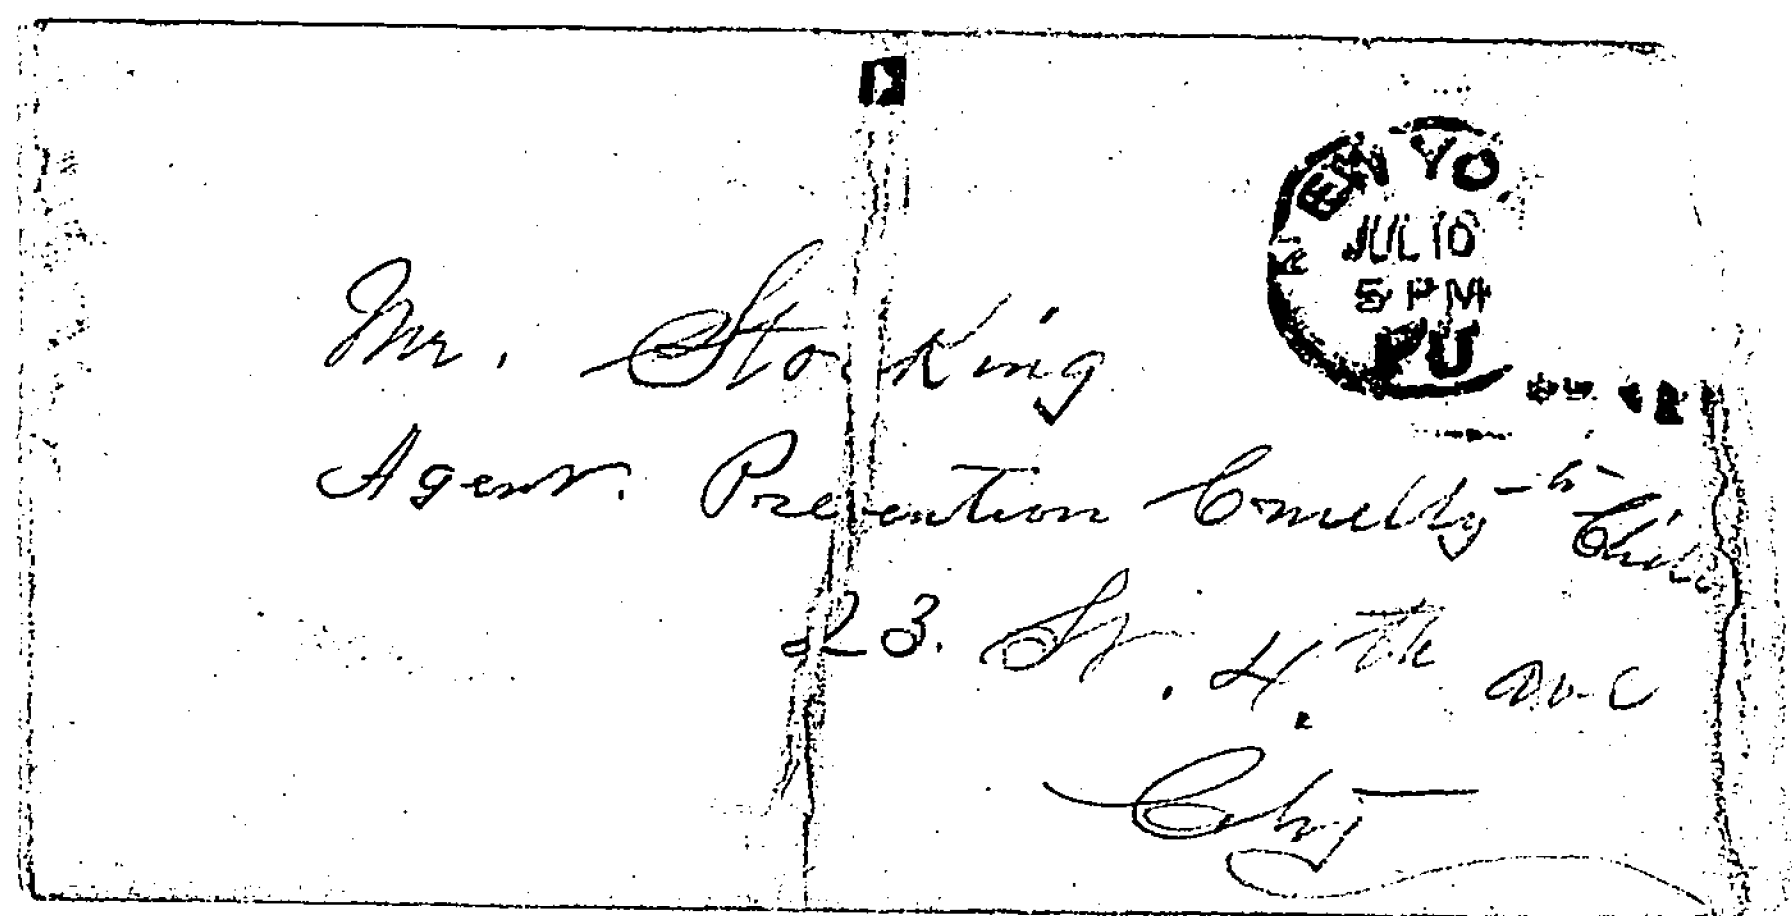 EW YO
JUL 10
5 PM
Mr. Stocking
Agent. Prevention Cruelty to Child
23. St. 4th Ave
City